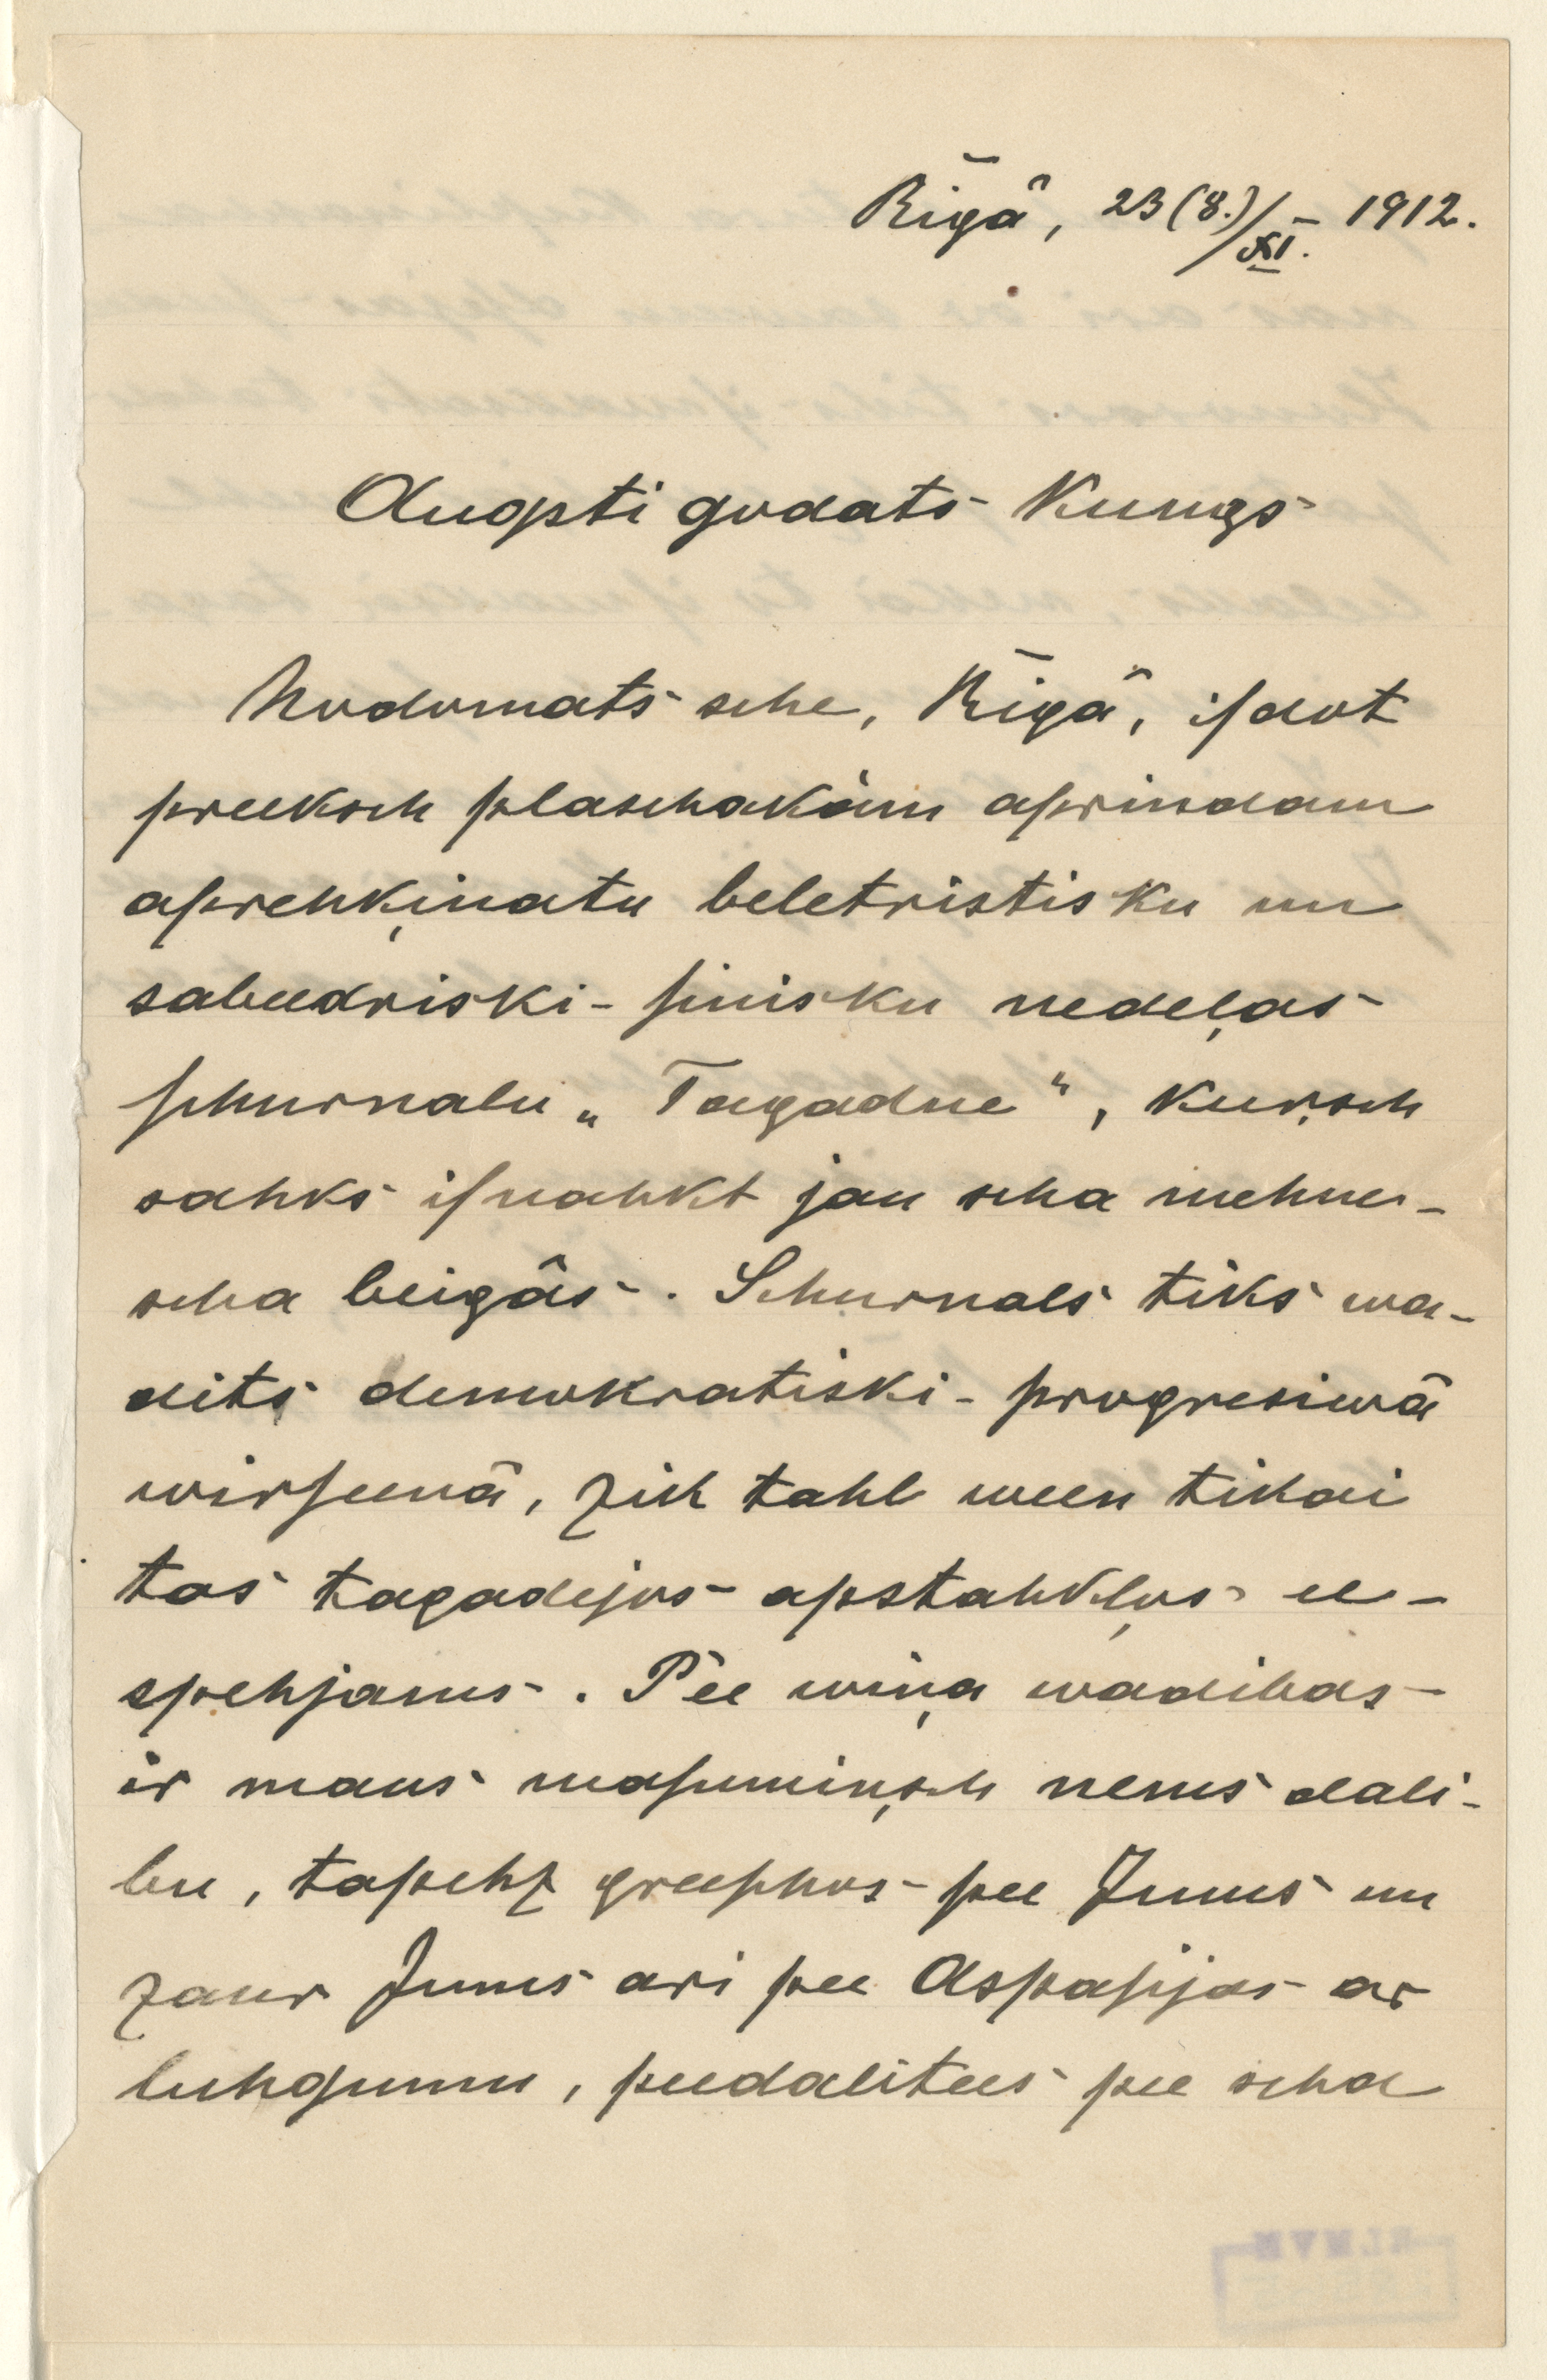 Rīgâ, 23(8.)/XI. – 1912.
Augsti godats Kungs
Nodomats sche, Rīgâ, isdot
preeksch plaschakâm aprindam
aprehķinatu beletristisku un
sabeedriski-sinisku nedeļas
schurnalu „Tagadne“, kuŗsch
sahks isnahkt jau scha mehne-
scha beigâs. Schurnals tiks wa-
dits demokratiski-progresiwâ
wirseenâ, zik tahl ween tikai
tas tagadejos apstahkļos ee-
spehjams. Pee wiņa wadibas
ir mans masumiņsch nems dali-
bu, tapehz greeschos pee Jums un
zaur Jums ari pee Aspasijas ar
luhgumu, peedalitees pee scha